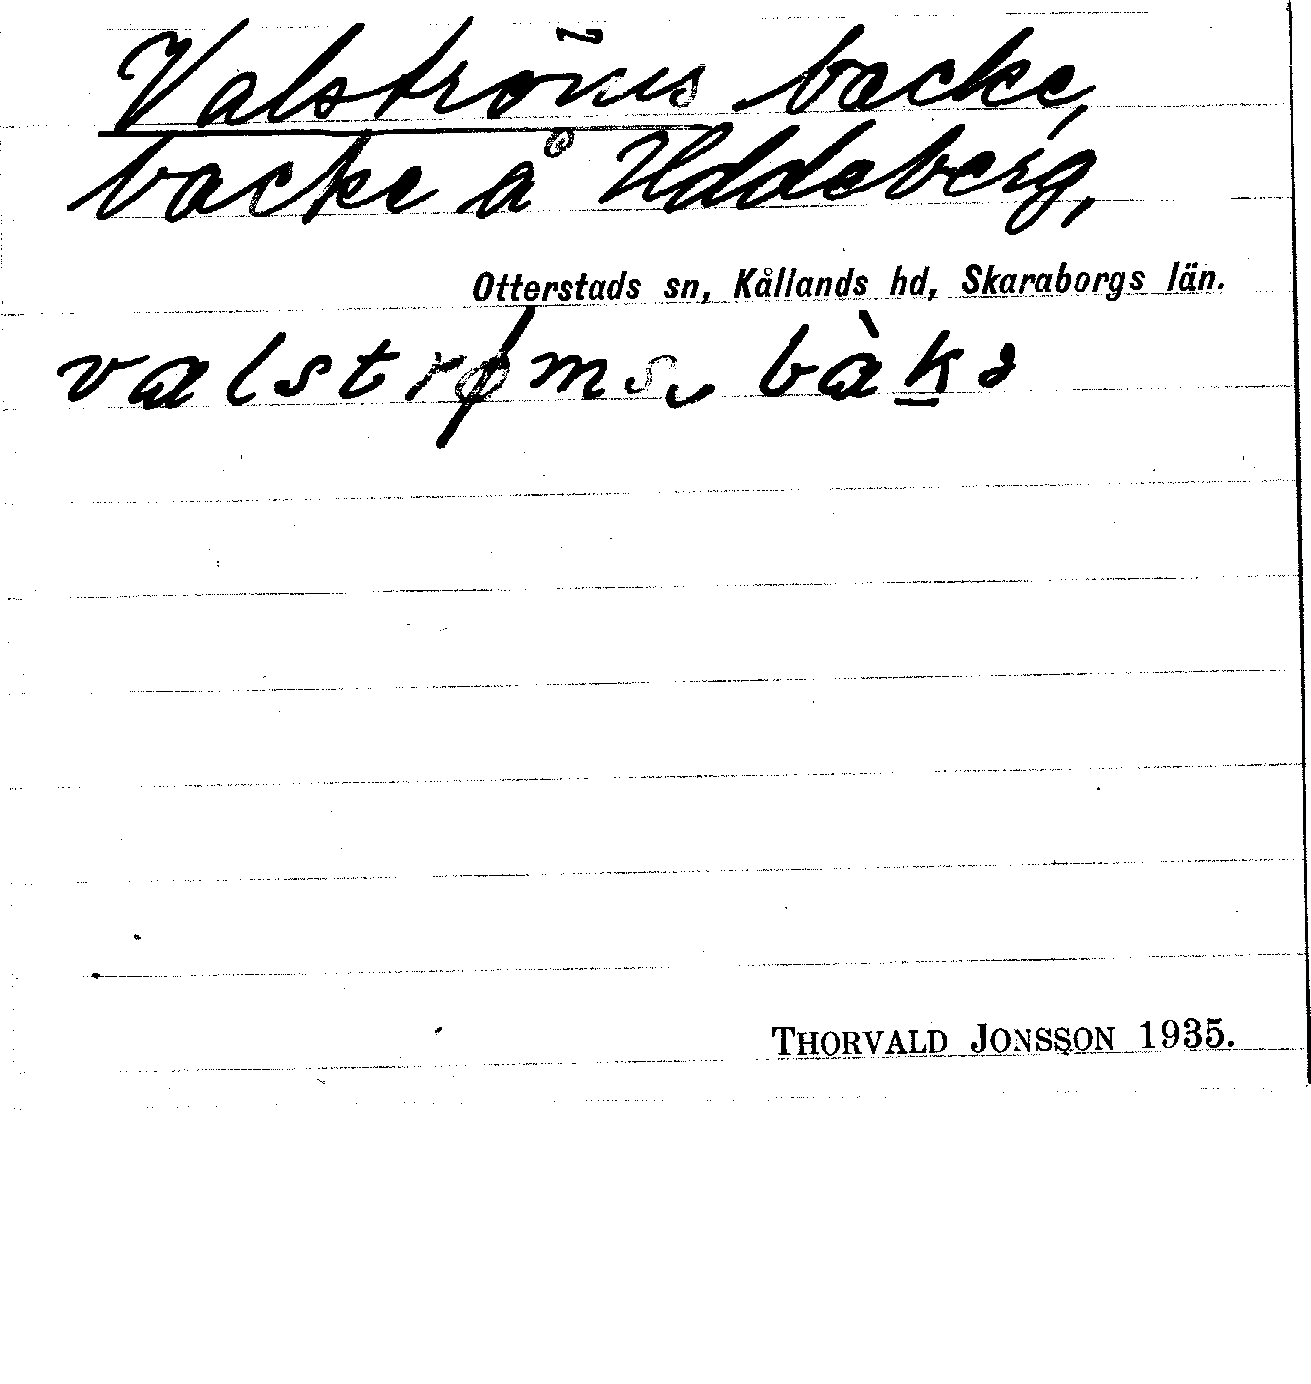 Valströms backe,
backe å Uddeberg,
Otterstads sn, Kållands hd, Skaraborgs län.
valstrøms ̮ bàk̲ə
THORVALD JONSSON 1935.